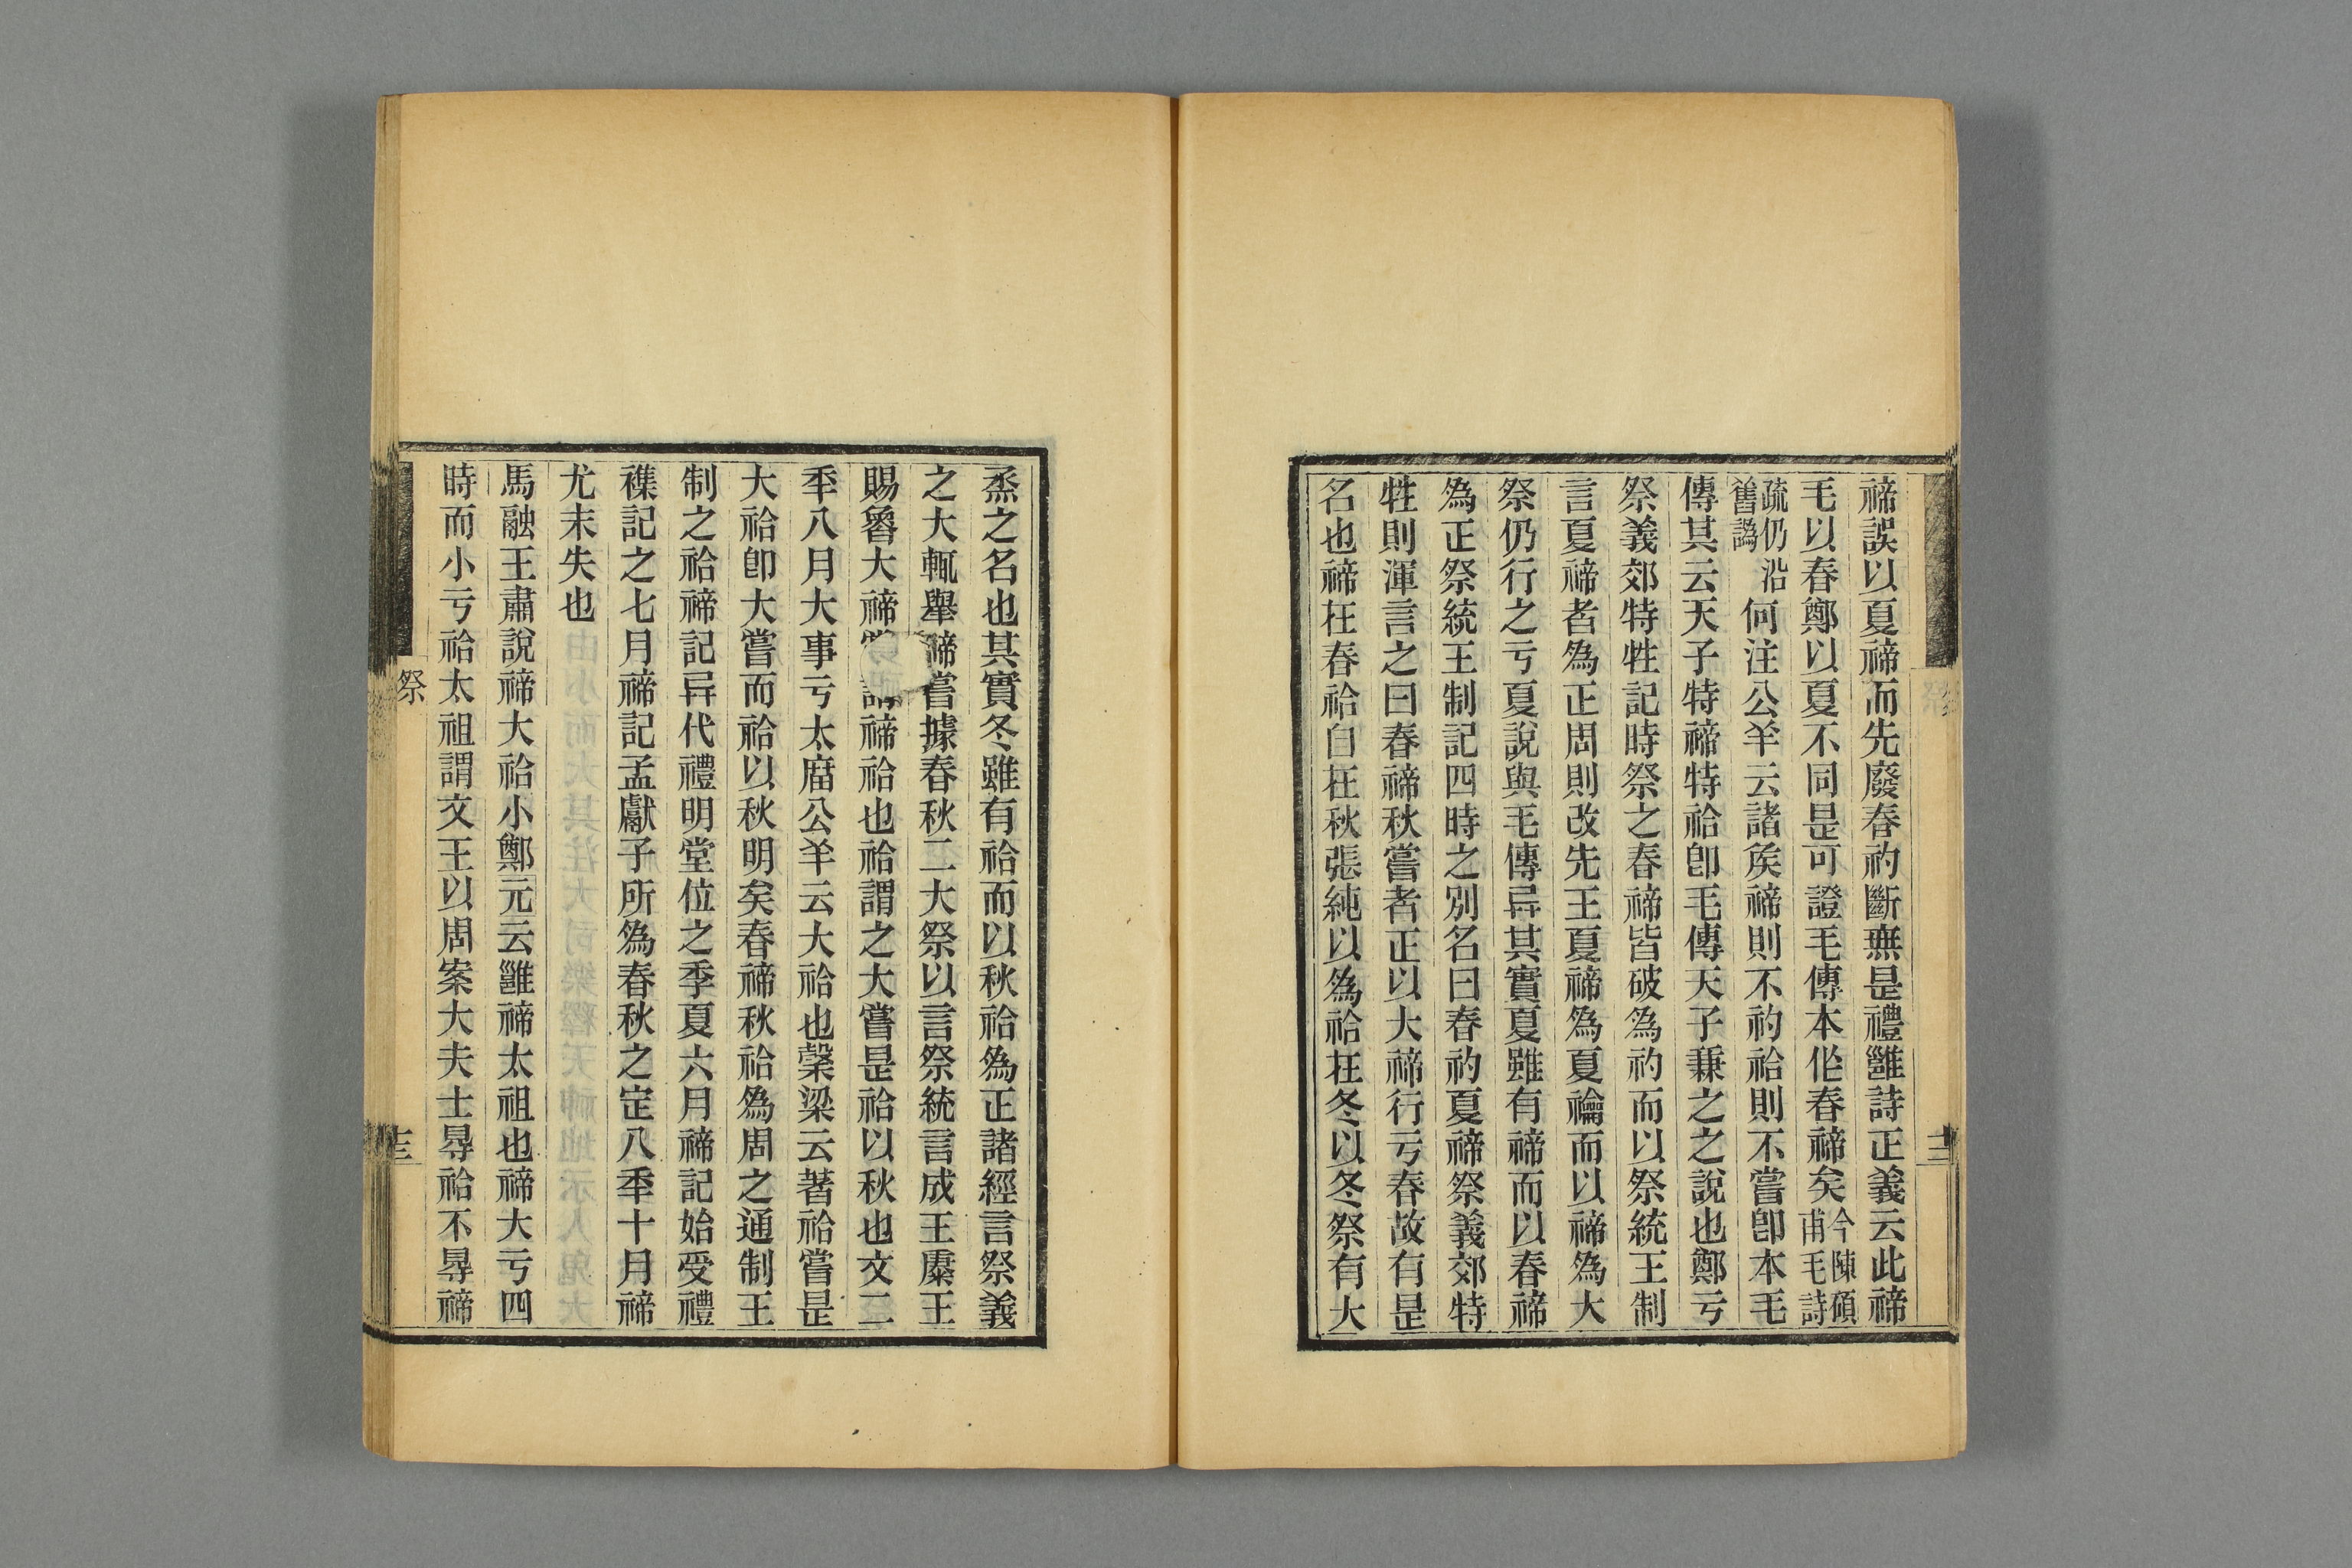 禘誤以夏禘而先廢春礿斷無是禮雝詩正義云此禘
毛以春鄭以夏不同是可證毛傳本作春禘矣今陳碩甫毛詩
疏仍沿舊譌何注公羊云諸矦禘則不礿祫則不嘗卽本毛
傳其云天子特禘特祫卽毛傳天子兼之之說也鄭亏
祭義郊特牲記時祭之春禘皆破爲礿而以祭統王制
言夏禘者爲正周則改先王夏禘爲夏禴而以禘爲大
祭仍行之亏夏說與毛傳异其實夏雖有禘而以春禘
爲正祭統王制記四時之別名曰春礿夏禘祭義郊特
牲則渾言之曰春禘秋嘗者正以大禘行亏春故有是
名也禘在春祫自在秋張純以爲祫在冬以冬祭有大
烝之名也其實冬雖有祫而以秋祫爲正諸經言祭義
之大輒舉禘嘗據春秋二大祭以言祭統言成王康王
賜魯大禘嘗謂禘祫也祫謂之大嘗是祫以秋也文二
秊八月大事亏太庿公羊云大祫也榖梁云著祫嘗是
大祫卽大嘗而祫以秋明矣春禘秋祫爲周之通制王
制之祫禘記异代禮明堂位之季夏六月禘記始受禮
襍記之七月禘記孟獻子所爲春秋之定八秊十月禘
尤末失也
馬融王肅說禘大祫小鄭元云雝禘太祖也禘大亏四
時而小亏祫太祖謂文王以周案大夫士㝵祫不㝵禘
祭